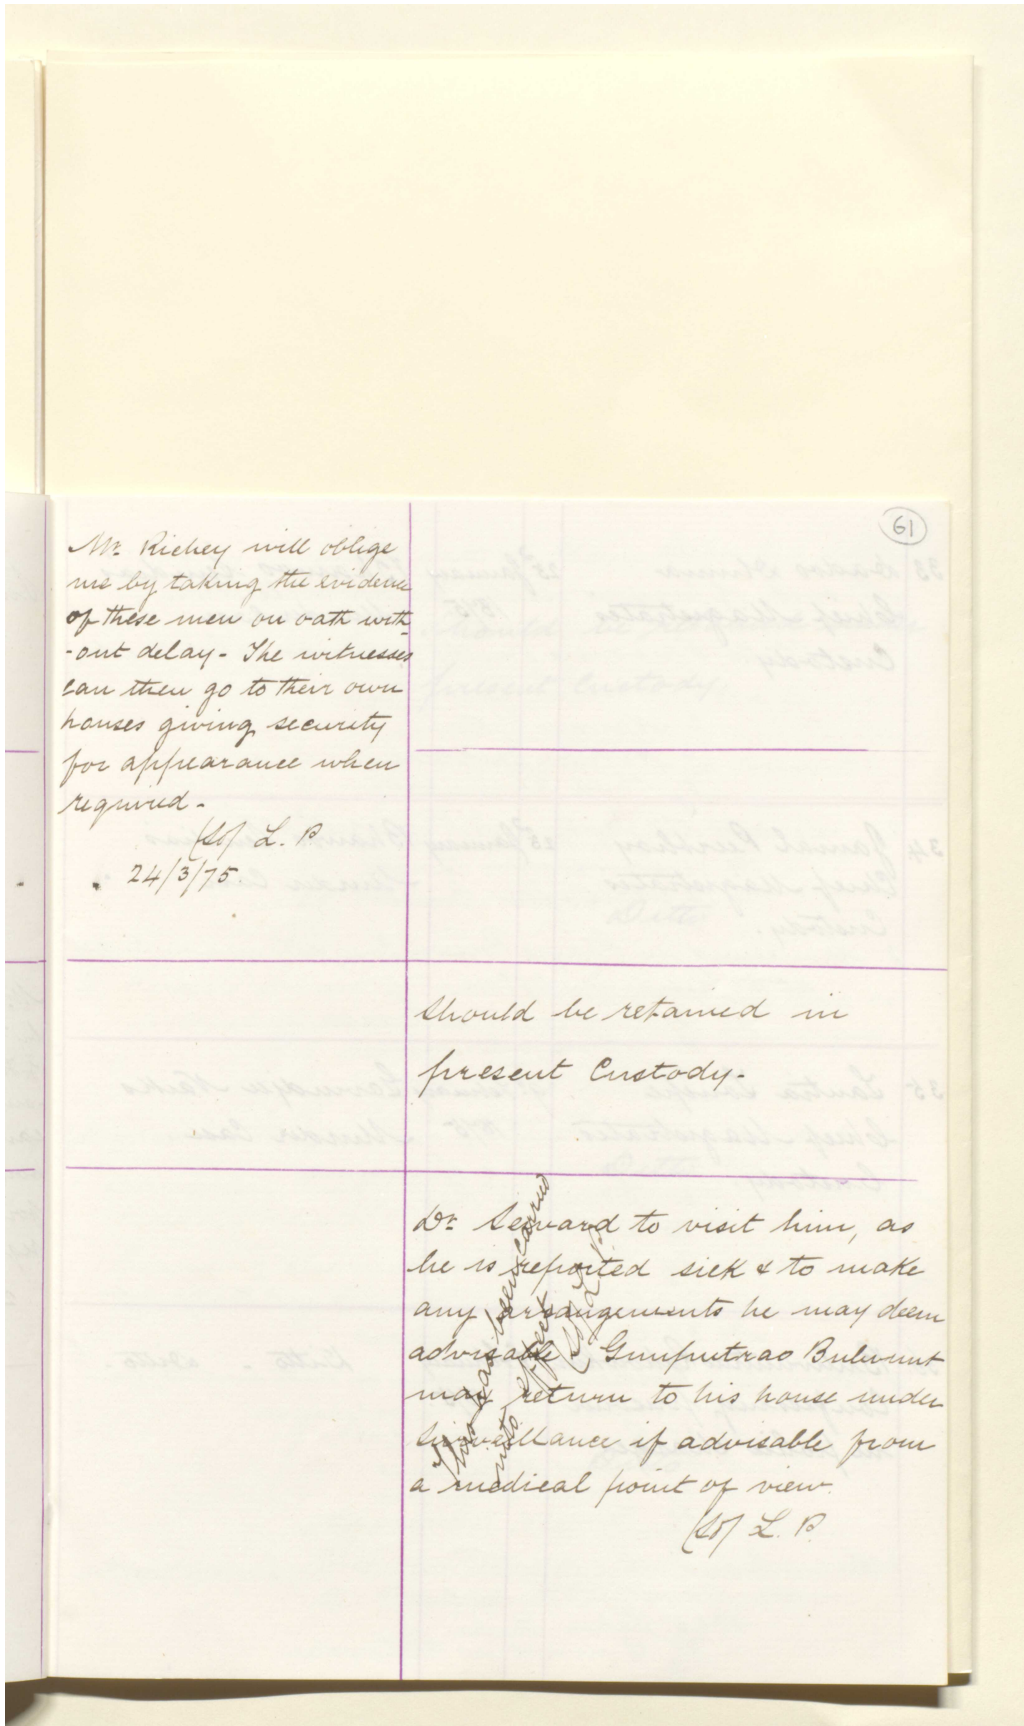 61
Mr. Richey will oblige
me by taking the evidence
of these men on oath with
-out delay - The witnesses
can then go to their own
houses giving security
for appearance when
required -
(Sd/ L. P
24/3/75.
should be retained in
present Custody -
Dr. Seward to visit him, as
he is reported sick & to make
any arrangements he may deem
advisable. Gunputrao Bulwunt
may return to his house under
Surveillance if advisable from
a medical point of view.
(Sd/ L. P.
This has been carried
into effect